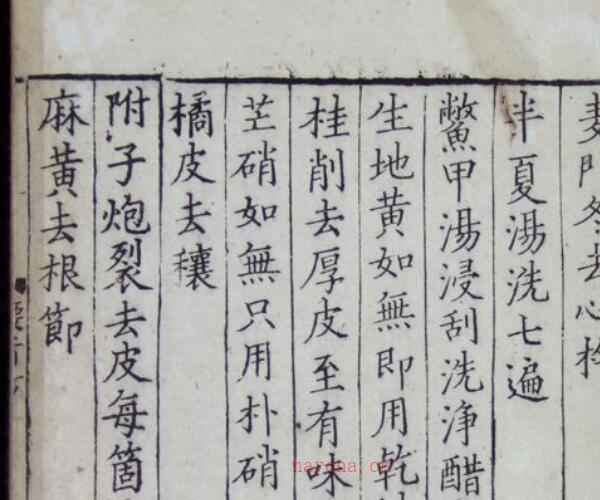 麦門冬去心
半夏湯洗七遍
鱉甲湯浸刮洗淨醋
生地黄如無即用乾
桂削去厚皮至有味
芒硝如無只用朴硝
橘皮去穰
附子炮裂去皮每箇
麻黄去根節